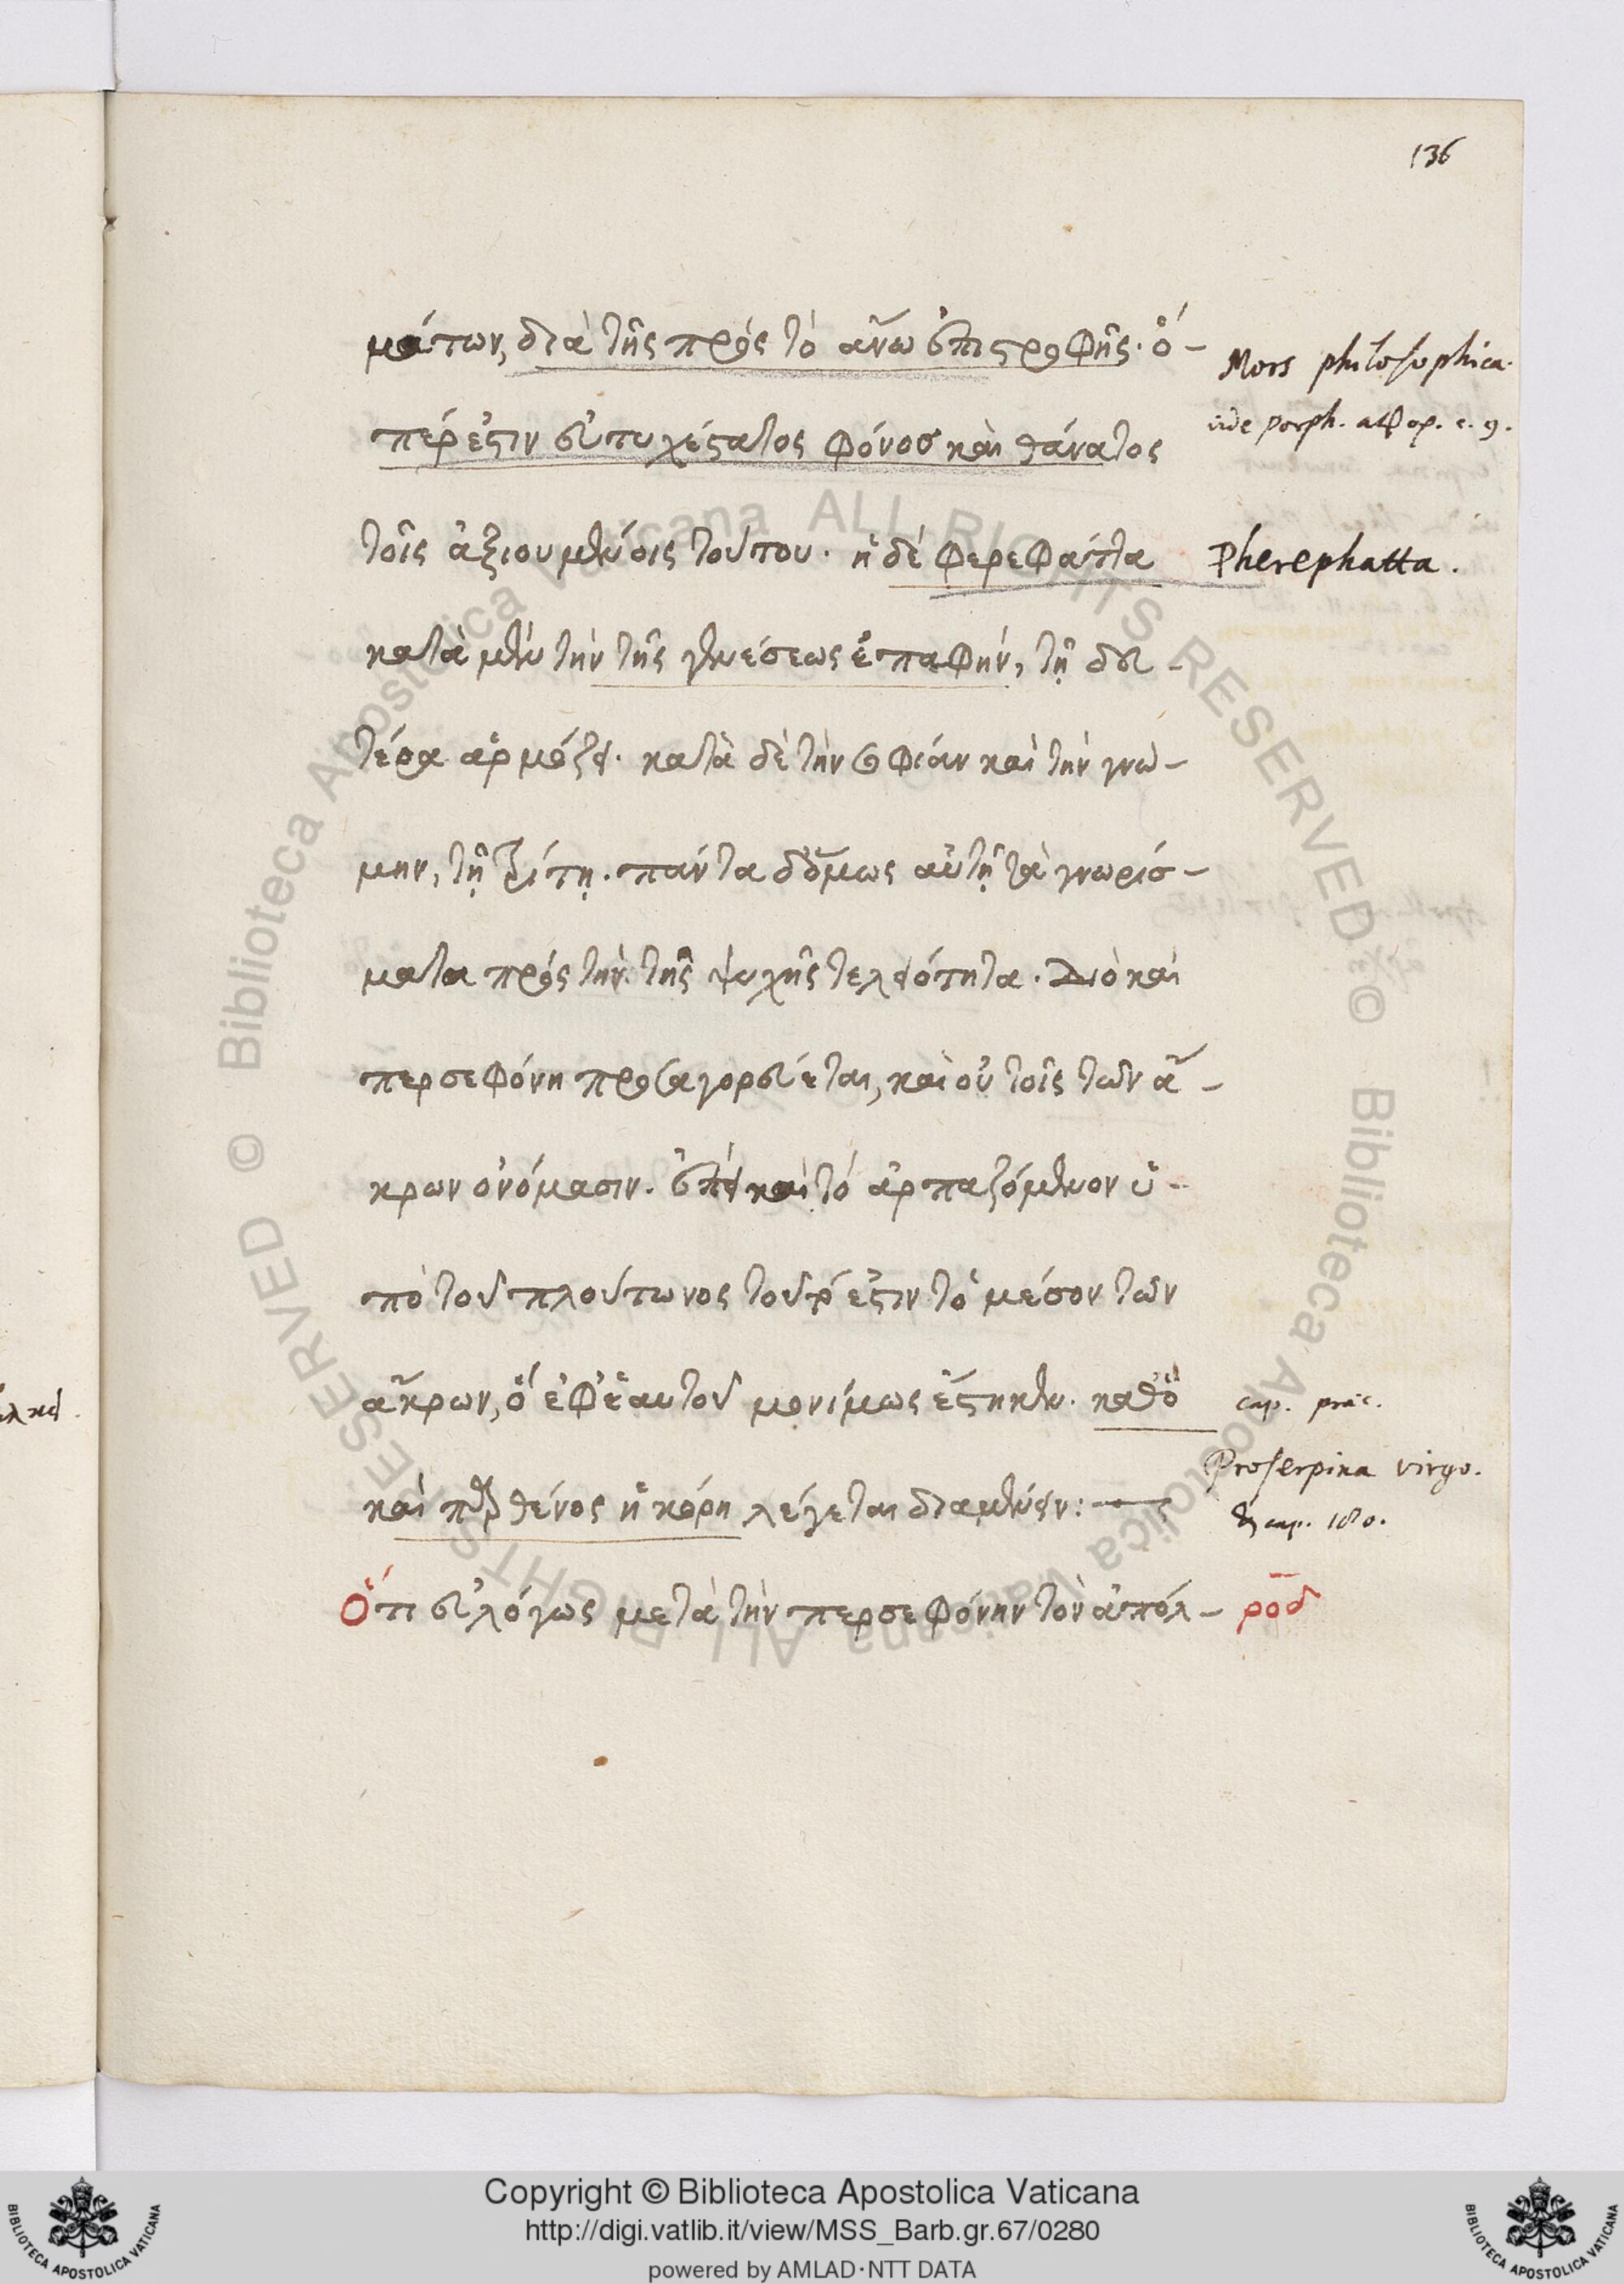 136
μάτων, διὰ τῆς πρὸς τὸ ἄνω ἐπιστροφῆς. ὅ-
Mors philosophica.
vide porph. αφορ. c. 9.
πέρ ἐστιν εὐτυχέστατος φόνος καὶ θάνατος
τοῖς ἀξιουμένοις τούτου. ἡ δὲ φερεφάττα
Pherephatta.
κατὰ μὲν τὴν τῆς γενέσεως ἐπαφήν, τῇ δευ-
τέρα ἁρμόζει. κατὰ δὲ τὴν σοφίαν καὶ τὴν γνώ-
μην, τῇ τρίτῃ. πάντα δ' ὅμως αὐτῇ τὰ γνωρίσ-
ματα πρὸς τὴν τῆς ψυχῆς τελειότητα. Διὸ καὶ
περσεφόνη προσαγορεύεται, καὶ οὐ τοῖς τῶν ἄ-
κρων ὀνόμασιν. ἐπεὶ καὶ τὸ ἁρπαζόμενον ὑ-
πὸ τοῦ πλούτωνος τοῦτ' ἐστιν τὸ μέσον τῶν
ἄκρων, ὃ ἐφ' ἑαυτοῦ μονίμως ἕστηκεν. καθὸ
cap. præc.
καὶ παρθένος ἡ κόρη λέγεται διαμένειν:
Proserpina virgo.
cap. 180.
Ὅτι εὐλόγως μετὰ τὴν περσεφόνην τὸν ἀπόλ-
ροδ
Copyright © Biblioteca Apostolica Vaticana
http://digi.vatlib.it/view/MSS_Barb.gr.67/0280
powered by AMLAD·NTT DATA
BIBLIOTECA APOSTOLICA VATICANA
BIBLIOTECA APOSTOLICA VATICANA
© Biblioteca Apostolica Vaticana ALL RIGHTS RESERVED © Biblioteca Apostolica Vaticana ALL RIGHTS RESERVED